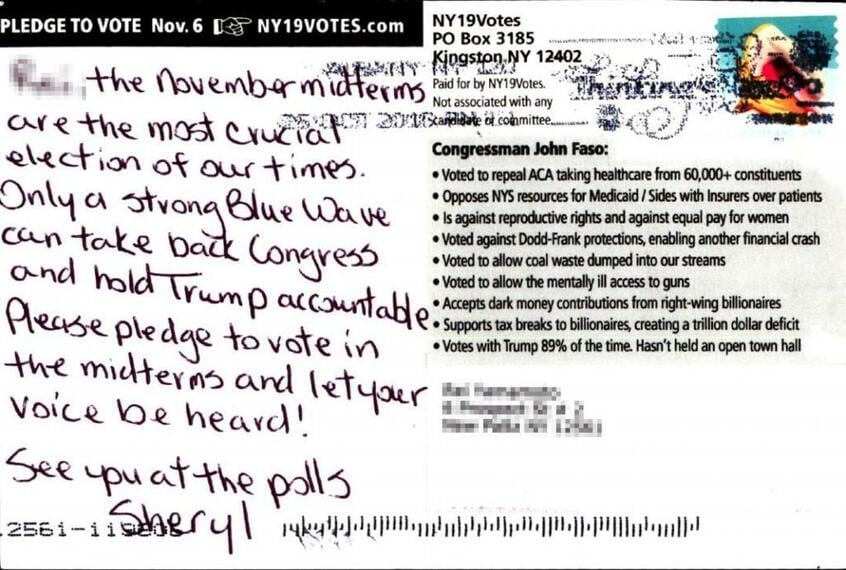 PLEDGE TO VOTE Nov. 6 NY19VOTES.com
the November midterms
are the most crucial
election of our times.
Only a strong Blue Wave
can take back Congress
and hold Trump accountable
Please pledge to vote in
the midterms and let your
voice be heard!
See you at the polls
Sheryl
NY19Votes
PO Box 3185
Kingston NY 12402
Paid for by NY19Votes.
Not associated with any
candidate or committee.
Congressman John Faso:
• Voted to repeal ACA taking healthcare from 60,000+ constituents
• Opposes NYS resources for Medicaid / Sides with Insurers over patients
• Is against reproductive rights and against equal pay for women
• Voted against Dodd-Frank protections, enabling another financial crash
• Voted to allow coal waste dumped into our streams
• Voted to allow the mentally ill access to guns
• Accepts dark money contributions from right-wing billionaires
• Supports tax breaks to billionaires, creating a trillion dollar deficit
• Votes with Trump 89% of the time. Hasn't held an open town hall